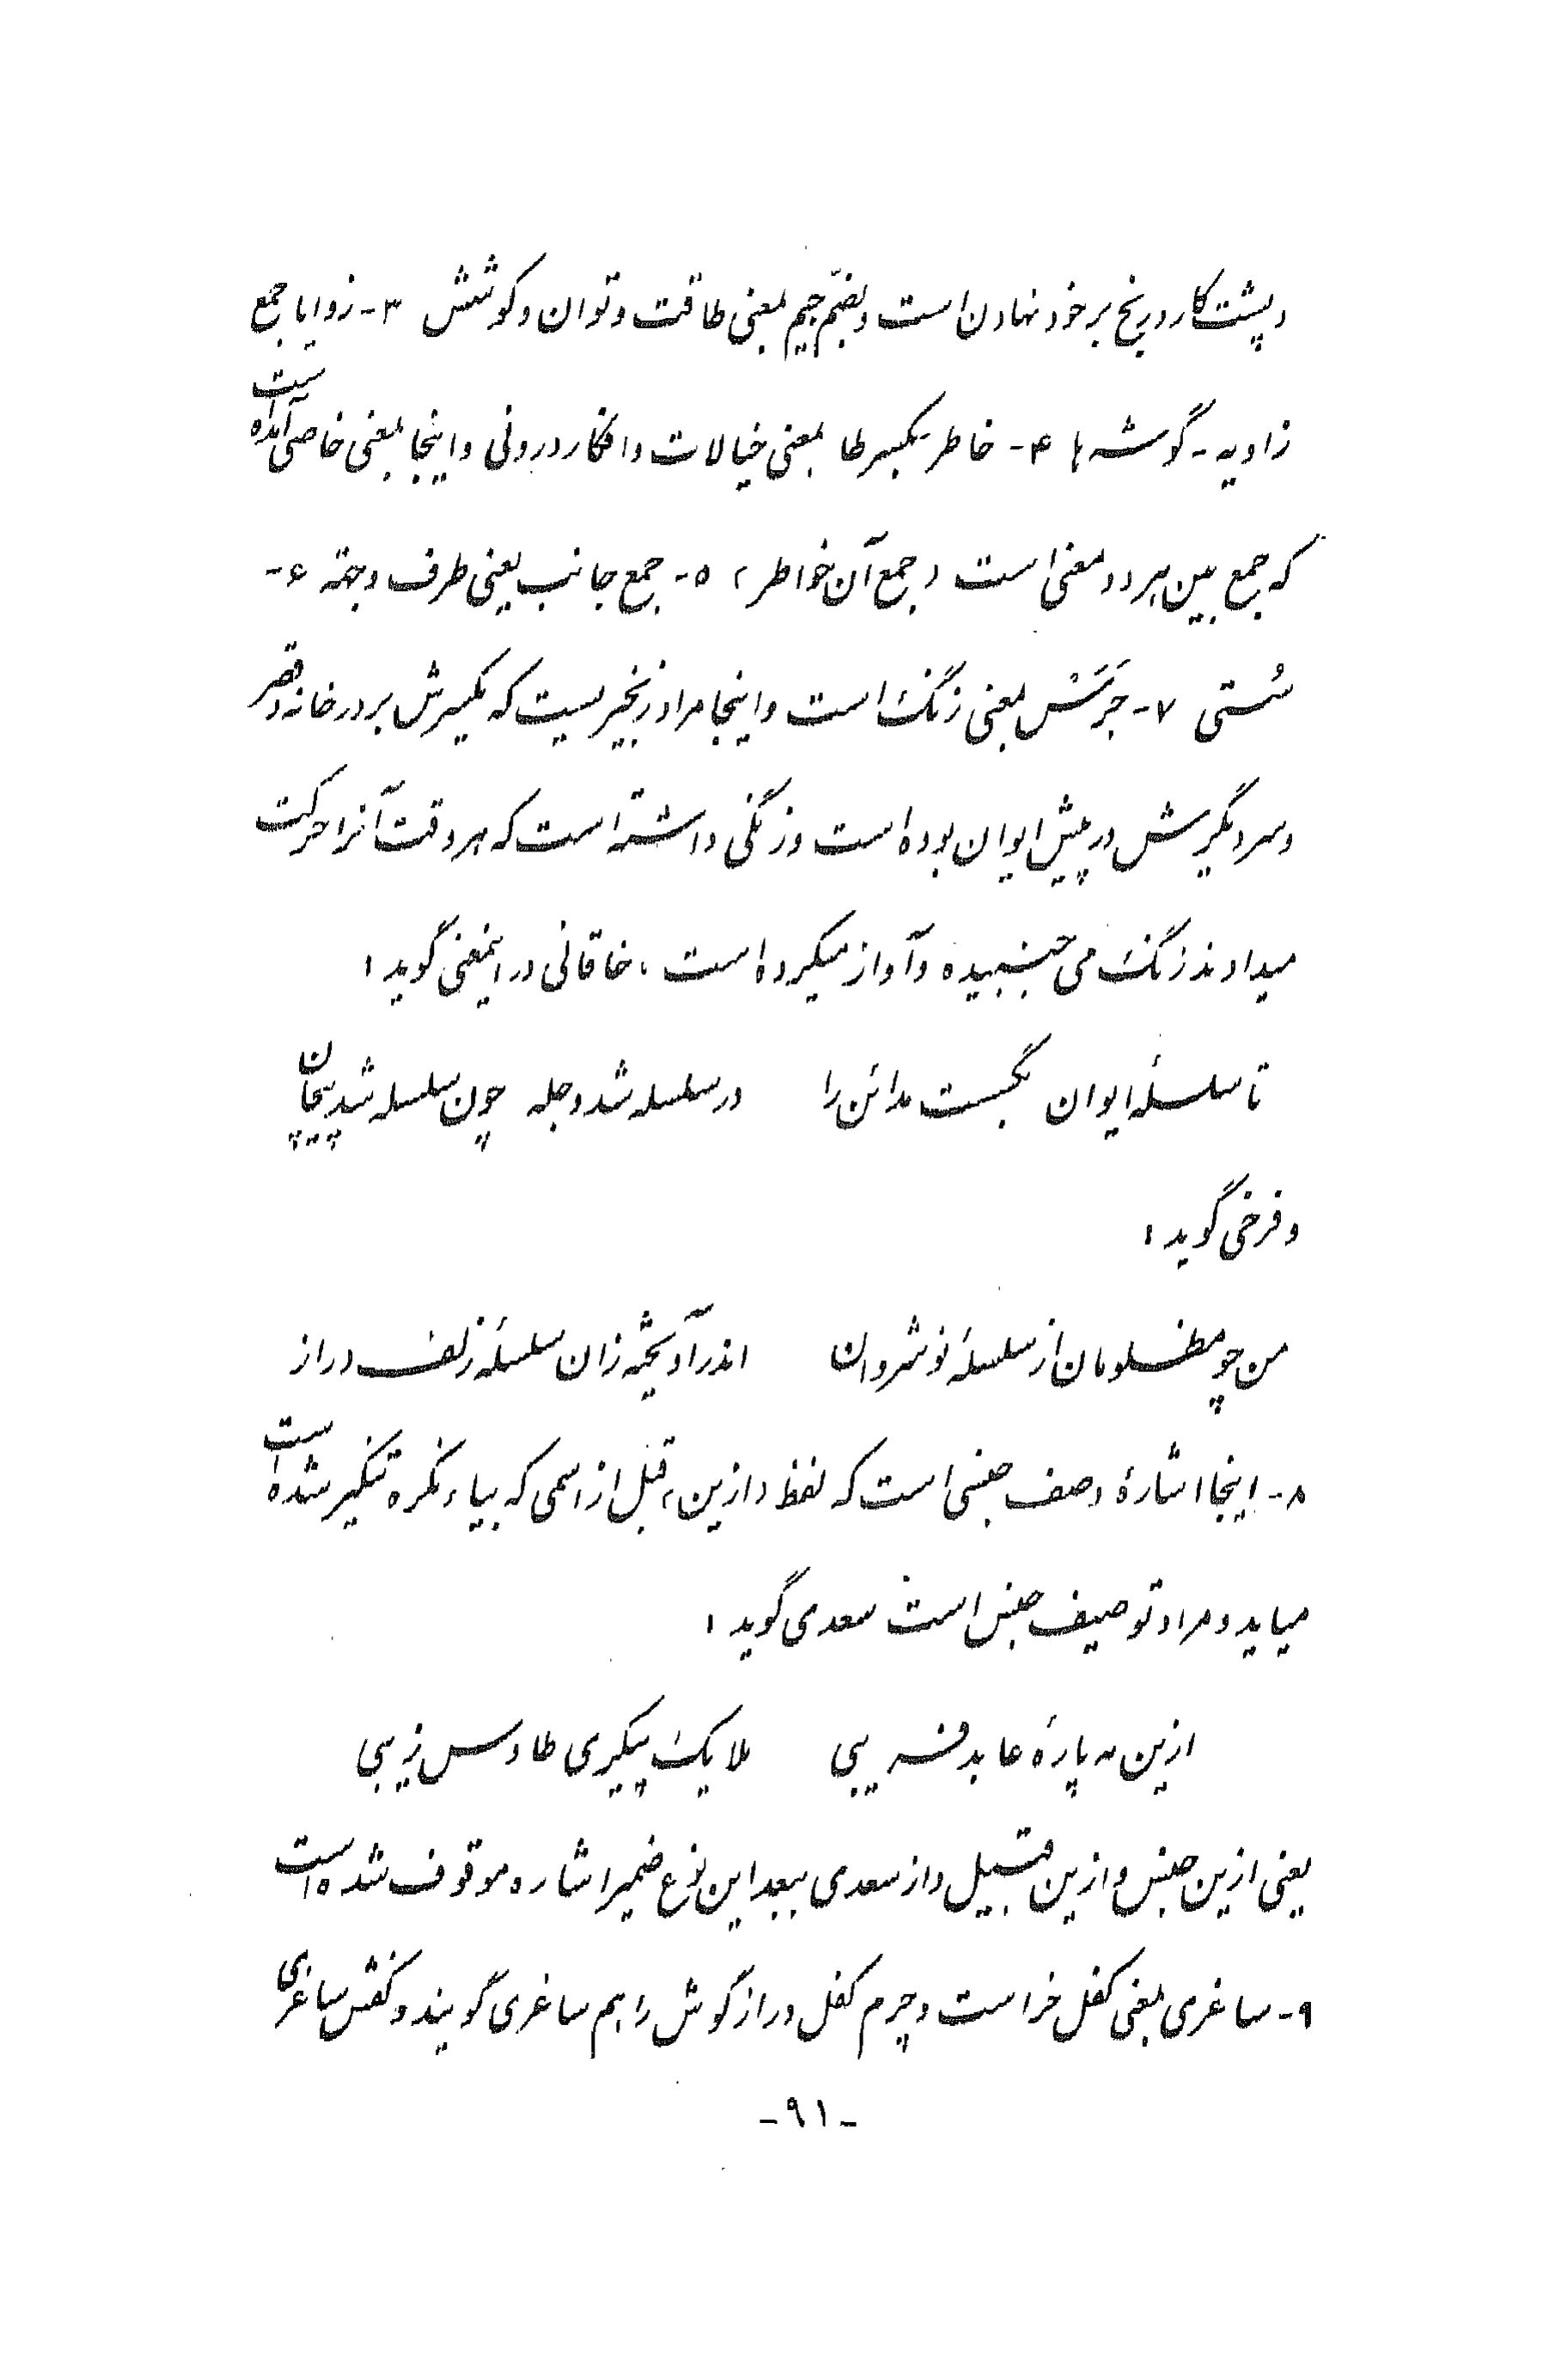 و پشت کار و رنج بر خود نهادن است و بضمّ جیم بمعنی طاقت و توان و کوشش ۳- زوایا جمع
زاویه - گوشه‌ها ۴- خاطر بکسر طا بمعنی خیالات و افکار درونی و اینجا بمعنی خاصی آمده است
که جمع بین هر دو معنی است (جمع آن خواطر) ۵- جمع جانب یعنی طرف وجهة ۶-
سُستی ۷- جَرَسْ بمعنی زنگ است و اینجا مراد زنجیریست که یکسرش بر در خانه و قصر
و سر دیگرش در پیش ایوان بوده است و زنگی داشته است که هر وقت آنرا حرکت
میدادند زنگ می جنبیده و آواز میکرده است، خاقانی در اینمعنی گوید:
تا سلسلهٔ ایوان بگسست مدائن را در سلسله شد دجله چون سلسله شد پیچان
و فرخی گوید:
من چو مظلومان از سلسلهٔ نوشروان اندر آویخته زان سلسلهٔ زلف دراز
۸- اینجا اشارهٔ وصف جنسی است که لفظ (ازین) قبل از اسمی که بیاء نکره تنکیر شده است
میاید و مراد توصیف جنس است سعدی گوید:
ازین مه پارهٔ عابد فریبی ملایک پیکری طاوس زیبی
یعنی ازین جنس و ازین قبیل و از سعدی ببعد این نوع ضمیر اشاره موقوف شده است
۹- ساغری بمعنی کفل خر است و چرم کفل دراز گوش را هم ساغری گویند و کفش ساغری
-۹۱-